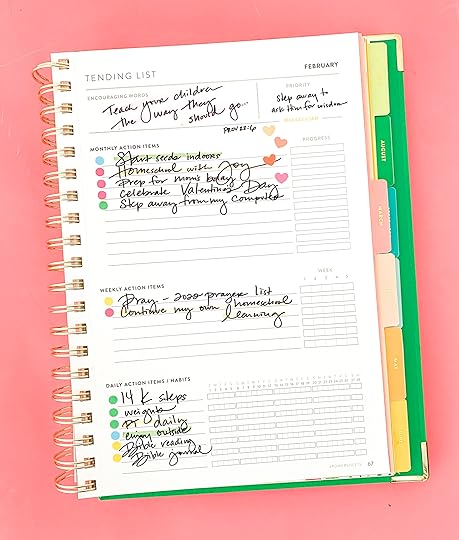 TENDING LIST
FEBRUARY
ENCOURAGING WORDS
Teach your children
the way they
should go...
PROV 22:6
PRIORITY
Step away to
ask Him for wisdom
MONTHLY ACTION ITEMS
PROGRESS
Start seeds indoors
Homeschool with Joy
Prep for mom's bday
Celebrate Valentines Day
Step away from my computer
WEEKLY ACTION ITEMS
WEEK
1 2 3 4 5
Pray - 2020 prayer list
Continue my own homeschool
learning
DAILY ACTION ITEMS / HABITS
14 K steps
weights
PT daily
enjoy outside
Bible reading
Bible journal
POWERSHEETS
67
AUGUST
MARCH
MAY